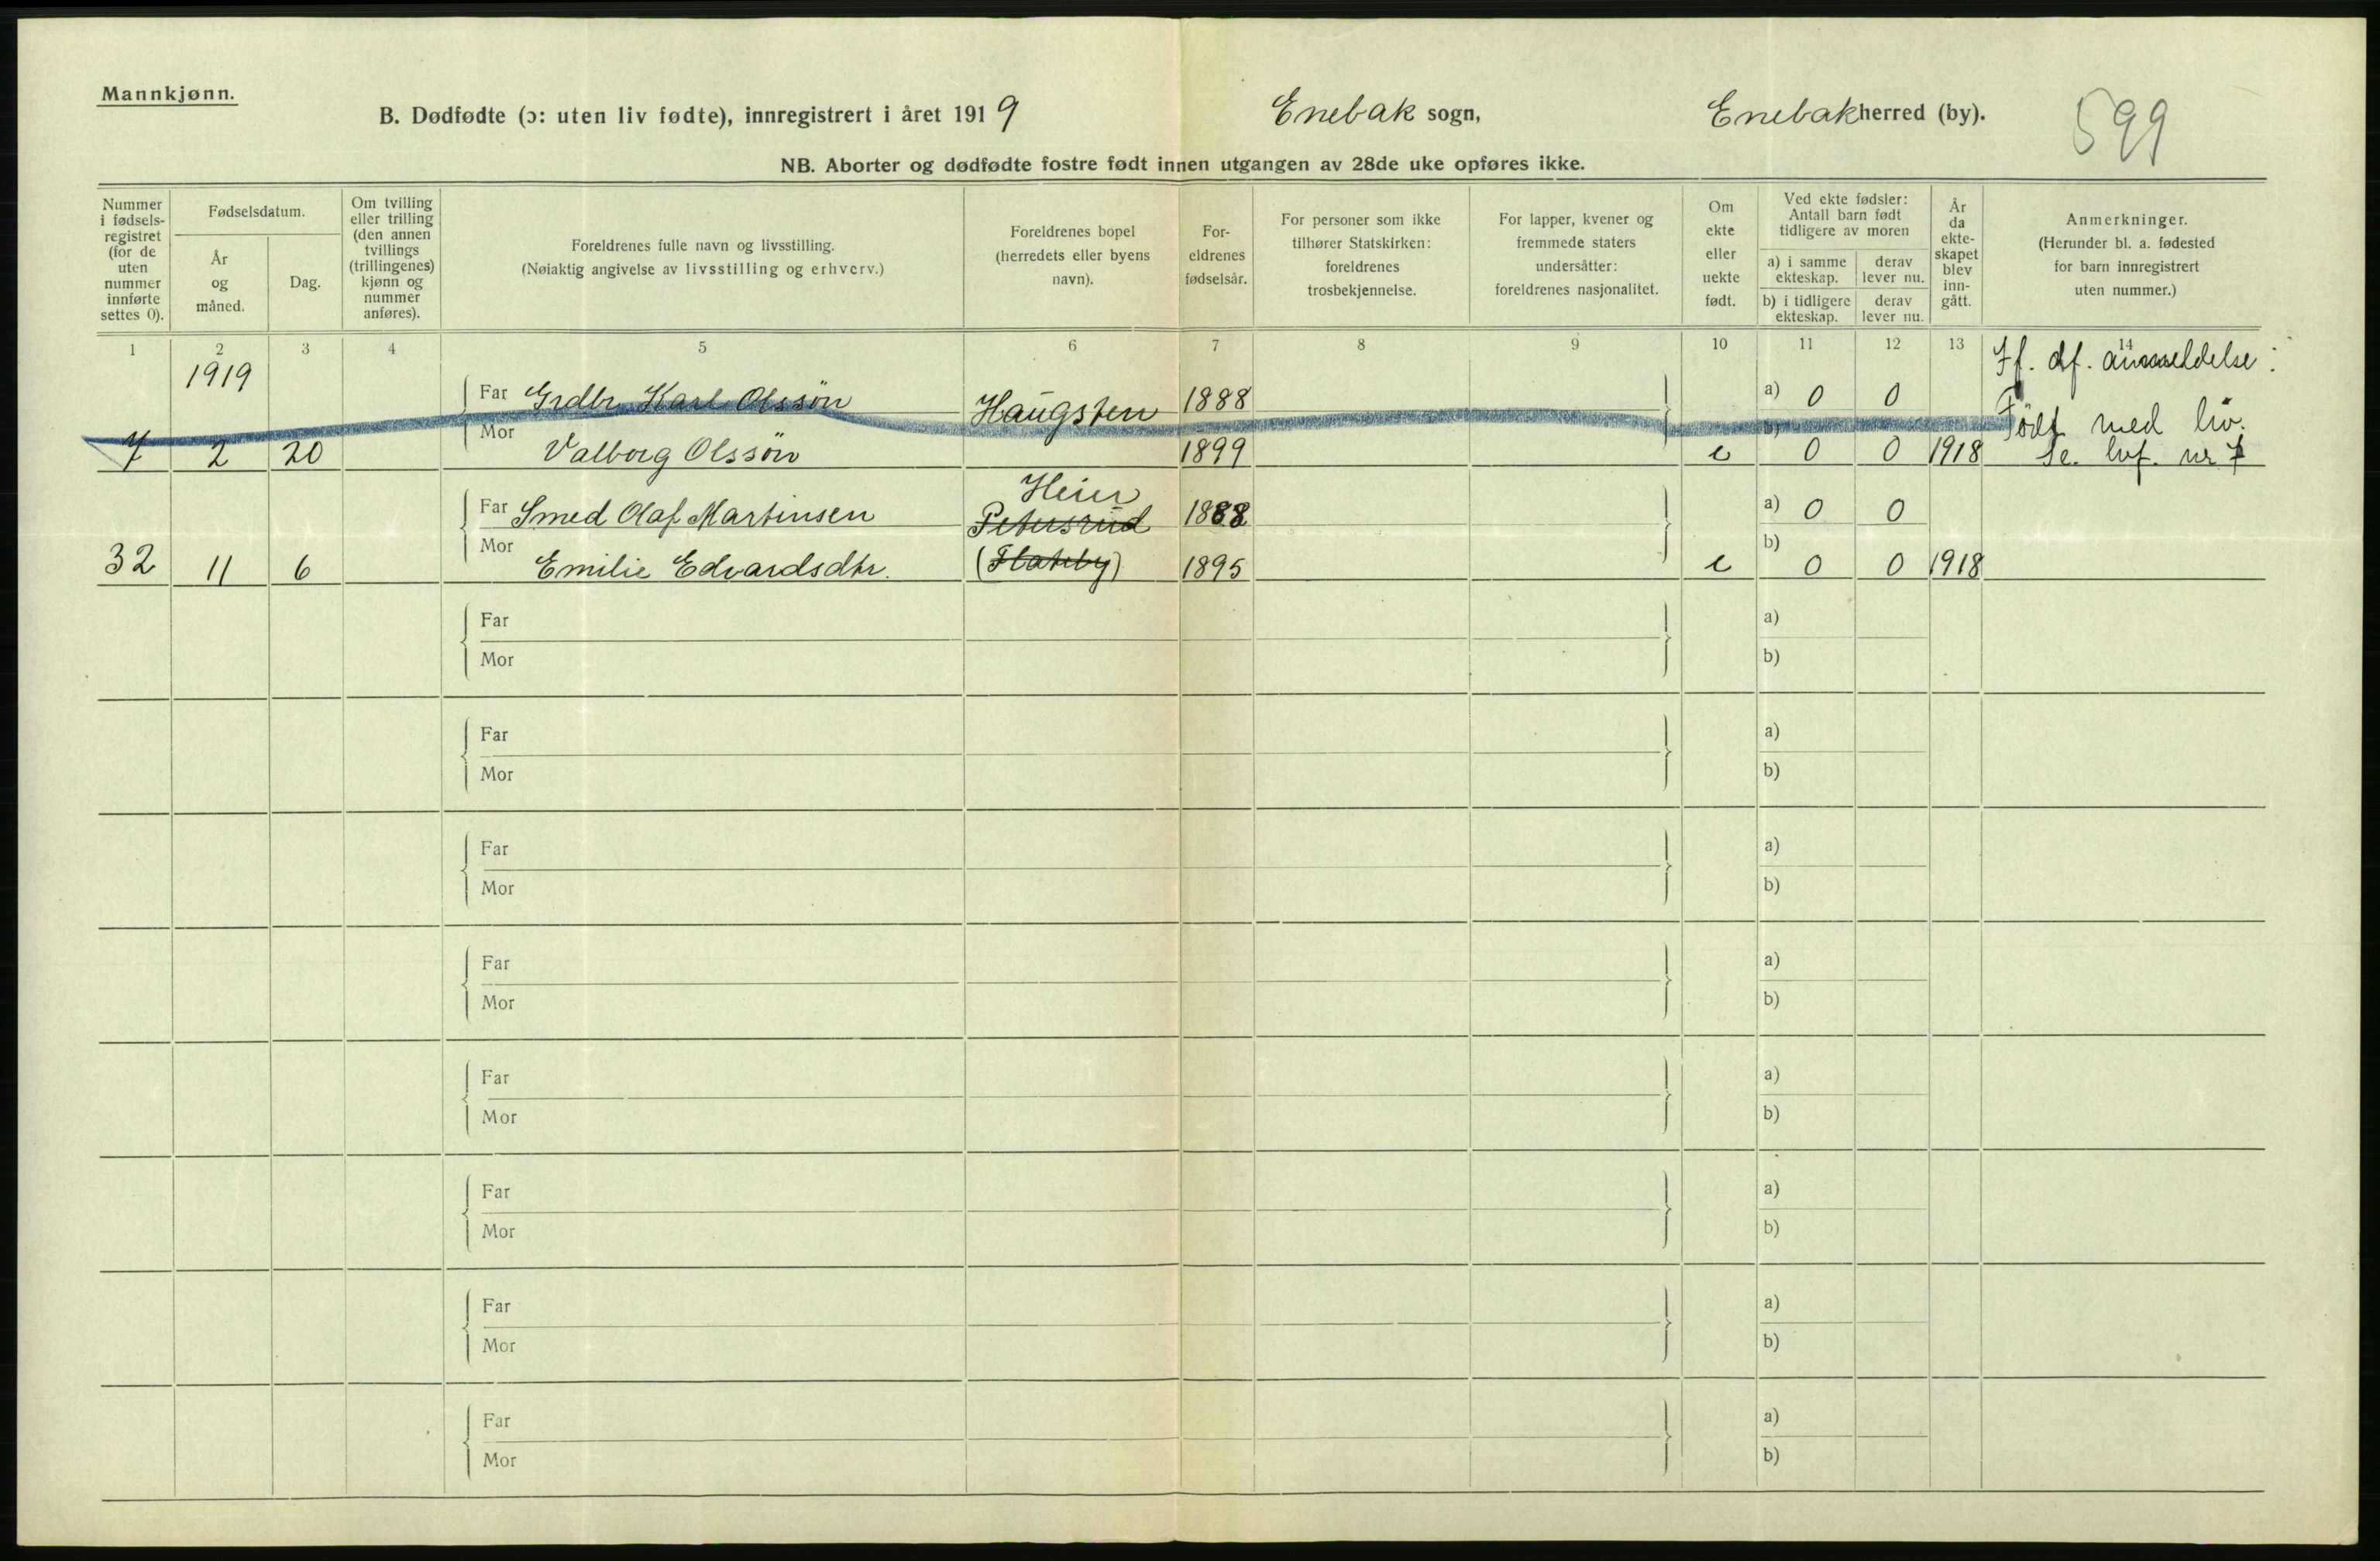 Mannkjønn.
B. Dødfødte (ɔ: uten liv fødte), innregistrert i året 1919 Enebak sogn, Enebak herred (by). 599
NB. Aborter og dødfødte fostre født innen utgangen av 28de uke opføres ikke.
Nummer i fødsels-registret (for de uten nummer innførte settes 0).
Fødselsdatum.
År og måned.
Dag.
Om tvilling eller trilling (den annen tvillings (trillingenes) kjønn og nummer anføres).
Foreldrenes fulle navn og livsstilling.
(Nøiaktig angivelse av livsstilling og erhverv.)
Foreldrenes bopel (herredets eller byens navn).
For-eldrenes fødselsår.
For personer som ikke tilhører Statskirken: foreldrenes trosbekjennelse.
For lapper, kvener og fremmede staters undersåtter: foreldrenes nasjonalitet.
Om ekte eller uekte født.
Ved ekte fødsler: Antall barn født tidligere av moren
a) i samme ekteskap. derav lever nu.
b) i tidligere ekteskap. derav lever nu.
År da ekte-skapet blev inn-gått.
Anmerkninger.
(Herunder bl. a. fødested for barn innregistrert uten nummer.)
1 2 3 4 5 6 7 8 9 10 11 12 13 14
1919 Jf. df. anmeldelse:
Far Grdbr. Karl Olssön Haugsten 1888 a) 0 0 Födt med liv.
7 2 20 Mor Valborg Olssön 1899 e b) 0 0 1918 Se lvf. nr 7
Heier
Far Smed Olaf Martinsen Petersrud 1888 a) 0 0
32 11 6 Mor Emilie Edvardsdtr. (Flateby) 1895 e b) 0 0 1918
Far a)
Mor b)
Far a)
Mor b)
Far a)
Mor b)
Far a)
Mor b)
Far a)
Mor b)
Far a)
Mor b)
Far a)
Mor b)
Far a)
Mor b)